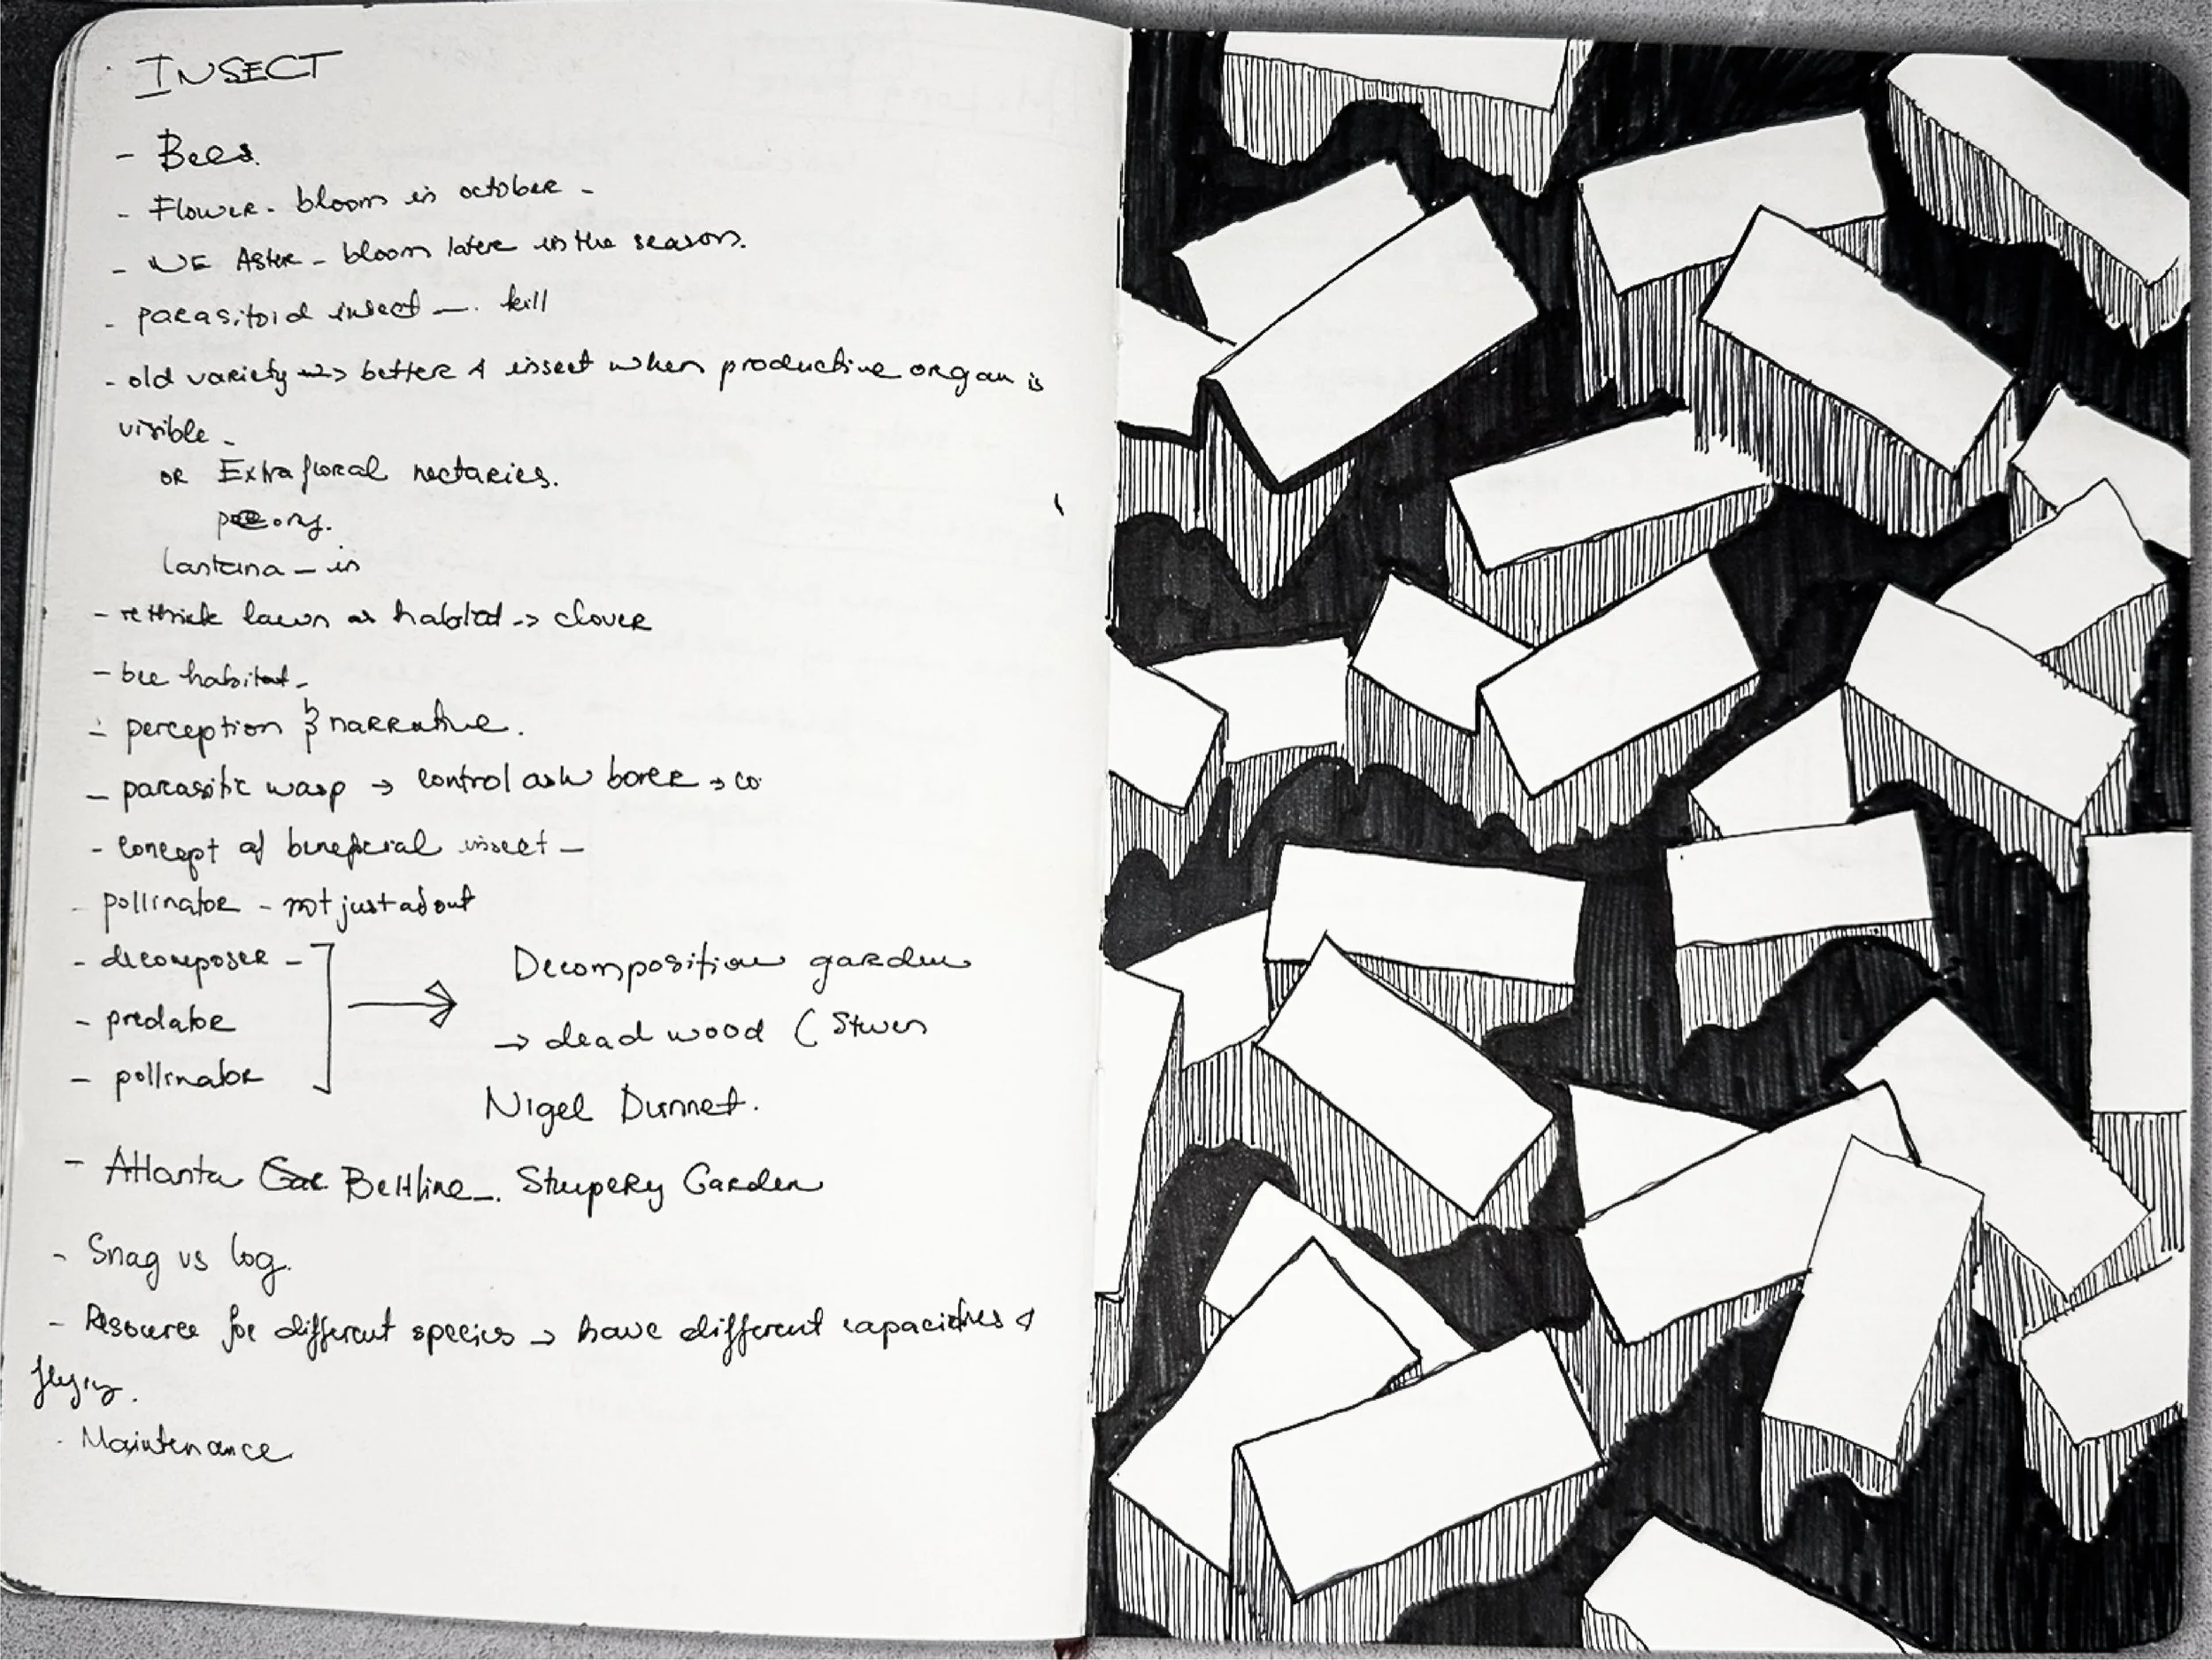 INSECT
- Bees.
- Flower - bloom in october -
- NE Aster - bloom later in the season.
- parasitoid insect - kill
- old variety => better 4 insect when productive organ is
visible -
OR Extrafloral nectaries.
peony.
lantana - in
- rethink lawn as habitat -> clover
- bee habitat -
- perception & narrative.
- parasitic wasp → control ash borer → co
- concept of beneficial insect -
- pollinator - not just about
- decomposer -
- predator
- pollinator
→ Decomposition garden
→ dead wood (
Nigel Dunnet.
- Atlanta Beltline -. Garden
- Snag vs log.
- Resource for different species → have different capacities 4
flying.
- Maintenance